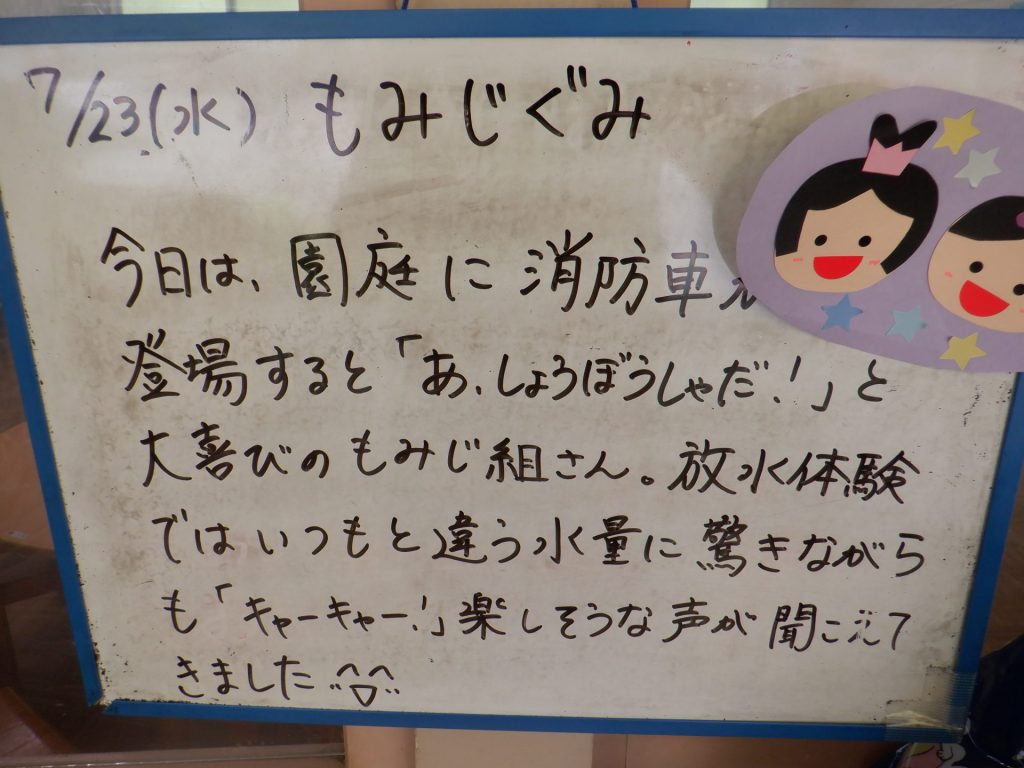 7/23(水) もみじぐみ
今日は、園庭に消防車
登場すると「あ、しょうぼうしゃだ!」と
大喜びのもみじ組さん。放水体験
ではいつもと違う水量に驚きながら
も「キャーキャー!」楽しそうな声が聞こえて
きました